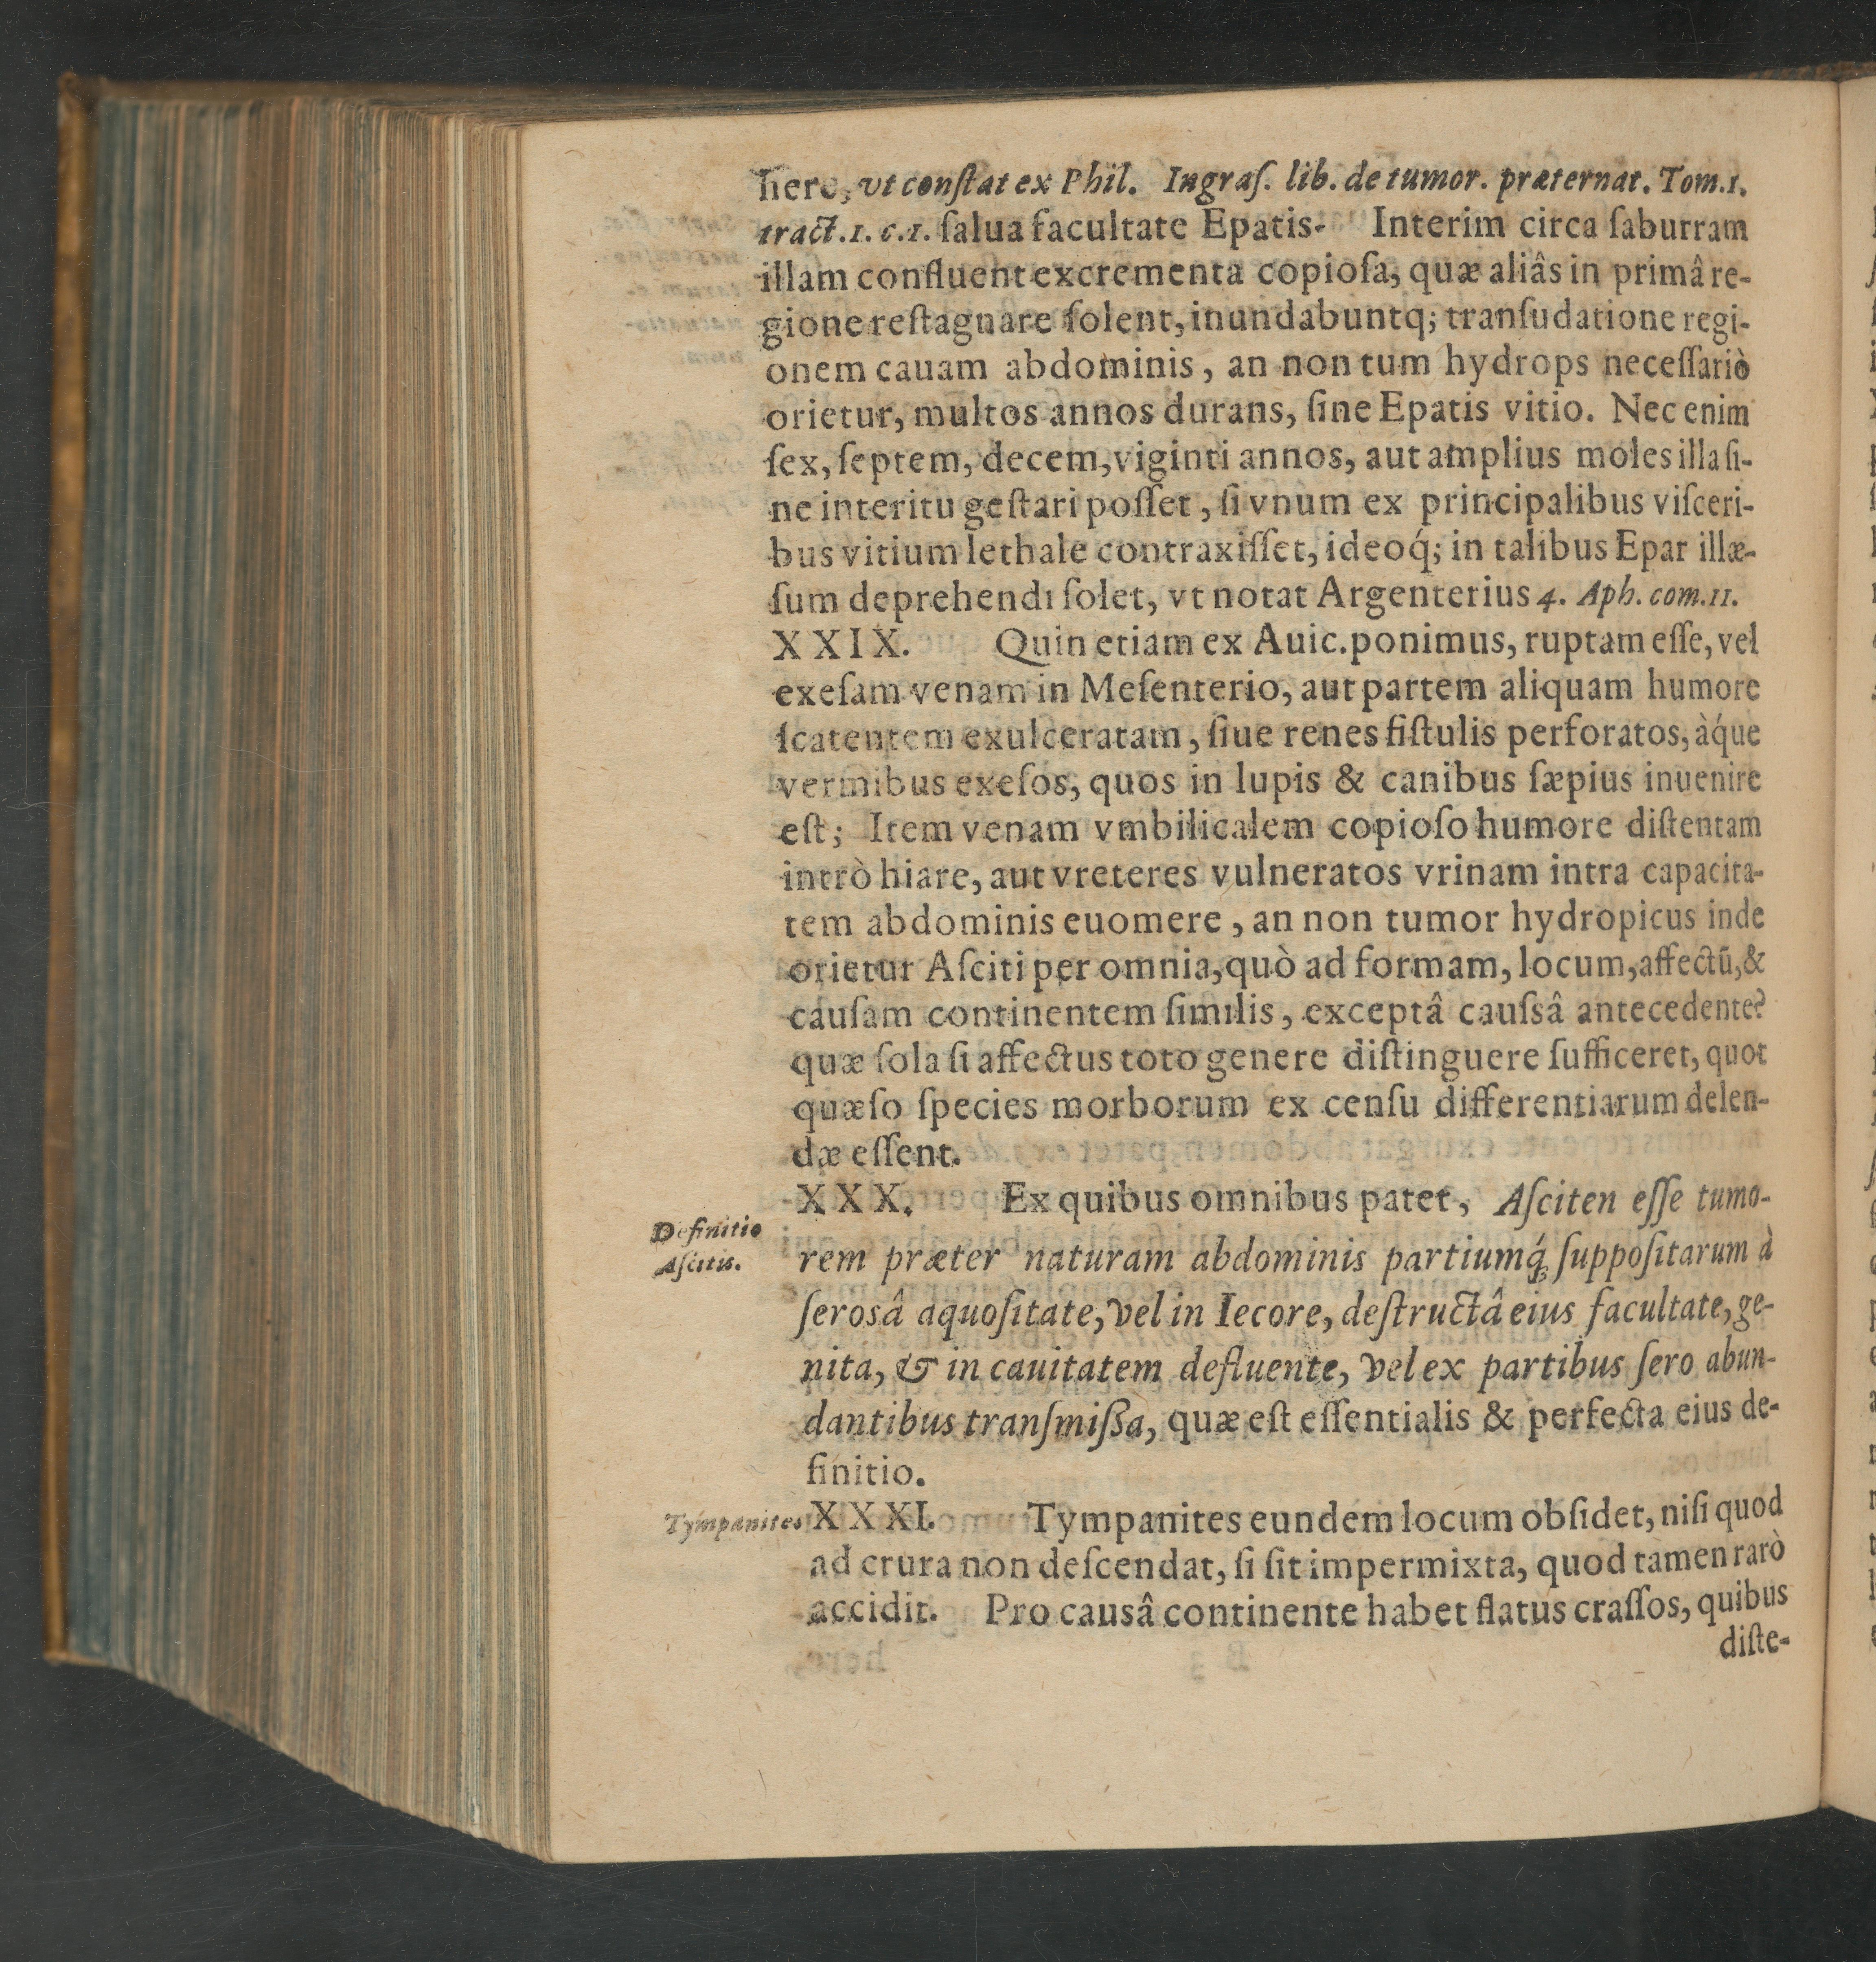 here, vt conſtat ex Phil. Ingraſ. lib. de tumor. præternat. Tom.1.
tract.1. c.1. ſalua facultate Epatis. Interim circa ſaburram
illam confluent excrementa copioſa, quæ aliâs in primâ re-
gione reſtagnare ſolent, inundabuntq; tranſudatione regi-
onem cauam abdominis, an non tum hydrops neceſſariò
orietur, multos annos durans, ſine Epatis vitio. Nec enim
ſex, ſeptem, decem, viginti annos, aut amplius moles illa ſi-
ne interitu geſtari poſſet, ſi vnum ex principalibus viſceri-
bus vitium lethale contraxiſſet, ideoq́; in talibus Epar illæ-
ſum deprehendi ſolet, vt notat Argenterius 4. Aph. com.11.
XXIX. Quin etiam ex Auic. ponimus, ruptam eſſe, vel
exeſam venam in Meſenterio, aut partem aliquam humore
ſcatentem exulceratam, ſiue renes fiſtulis perforatos, àq́ue
vermibus exeſos, quos in lupis & canibus ſæpius inuenire
eſt; Item venam vmbilicalem copioſo humore diſtentam
intrò hiare, aut vreteres vulneratos vrinam intra capacita-
tem abdominis euomere, an non tumor hydropicus inde
orietur Aſciti per omnia, quò ad formam, locum, affectū, &
cauſam continentem ſimilis, exceptâ cauſsâ antecedente?
quæ ſola ſi affectus toto genere diſtinguere ſufficeret, quot
quæſo ſpecies morborum ex cenſu differentiarum delen-
dæ eſſent.
XXX. Ex quibus omnibus patet, Aſciten eſſe tumo-
Definitio
Aſcitis.
rem præter naturam abdominis partiumq́; ſuppoſitarum à
ſerosâ aquoſitate, vel in Iecore, deſtructâ eius facultate, ge-
nita, & in cauitatem defluente, vel ex partibus ſero abun-
dantibus tranſmiſſa, quæ eſt eſſentialis & perfecta eius de-
finitio.
Tympanites XXXI. Tympanites eundem locum obſidet, niſi quod
ad crura non deſcendat, ſi ſit impermixta, quod tamen rarò
accidit. Pro causâ continente habet flatus craſſos, quibus
diſte-